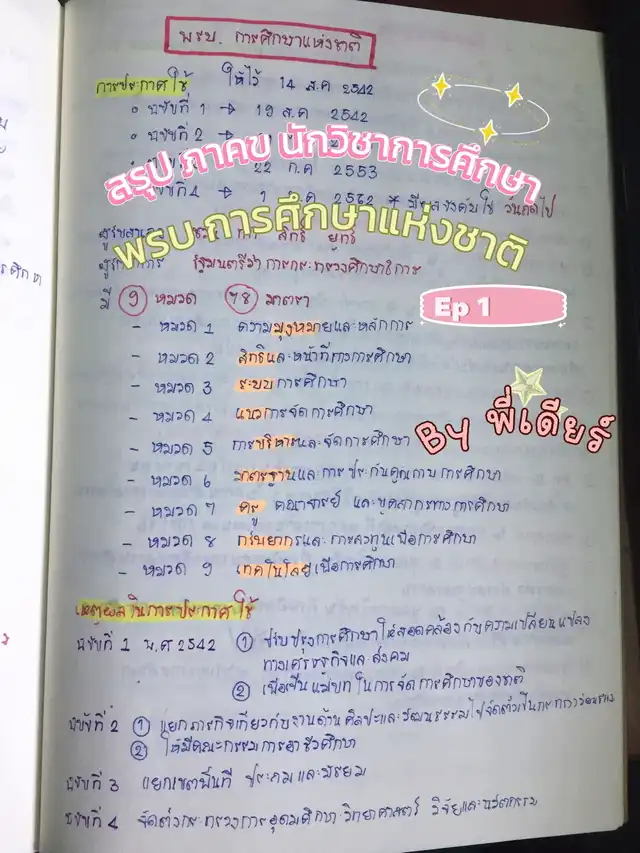 พรบ. การศึกษาแห่งชาติ
การประกาศใช้ ให้ไว้ 14 ส.ค 2542
ฉบับที่ 1 → 19 ส.ค 2542
ฉบับที่ 2 →
สรุป ภาคข นักวิชาการศึกษา
22 ก.ค 2553
ฉบับที่ 4 → 1 ค 2562 * มีผลบังคับใช้ วันถัดไป
พรบ.การศึกษาแห่งชาติ
รัฐมนตรีว่าการกระทรวงศึกษาธิการ
มี 9 หมวด 78 มาตรา
Ep 1
- หมวด 1 ความมุ่งหมายและหลักการ
- หมวด 2 สิทธิและหน้าที่ทางการศึกษา
- หมวด 3 ระบบการศึกษา
- หมวด 4 แนวการจัดการศึกษา
By พี่เดียร์
- หมวด 5 การบริหารและจัดการศึกษา
- หมวด 6 มาตรฐานและการประกันคุณภาพการศึกษา
- หมวด 7 ครู คณาจารย์ และบุคลากรทางการศึกษา
- หมวด 8 ทรัพยากรและการลงทุนเพื่อการศึกษา
- หมวด 9 เทคโนโลยีเพื่อการศึกษา
เหตุผลในการประกาศใช้
ฉบับที่ 1 พ.ศ 2542 ① ปรับปรุงการศึกษาให้สอดคล้องกับความเปลี่ยนแปลง
ทางเศรษฐกิจและสังคม
② เพื่อเป็นแม่บทในการจัดการศึกษาของชาติ
ฉบับที่ 2 ① แยกภารกิจเกี่ยวกับงานด้านศิลปะและวัฒนธรรมไปจัดตั้งเป็นกระทรวงวัฒนธรรม
② ให้มีคณะกรรมการอาชีวศึกษา
ฉบับที่ 3 แยกเขตพื้นที่ ประถมและมัธยม
ฉบับที่ 4 จัดตั้งกระทรวงการอุดมศึกษา วิทยาศาสตร์ วิจัยและนวัตกรรม